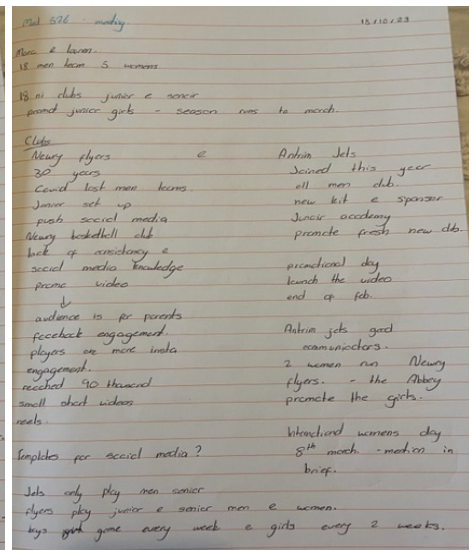 Med 526 - meeting
13/10/23
Marc e Lauren.
18 men team 5 womens
18 ni clubs junior e senior
promot junior girls - season runs to march.
Clubs
Newry flyers e
30 years
Covid lost men teams
Junior set up
push social media
Newry basketball club
lack of consistancy e
social media knowledge
promo video
↓
audience is for parents
facebook engagement.
players are more insta
engagement.
reached 90 thousand
small short videos
reels.
Templates for social media?
Antrim Jets
Joined this year
all men club.
new kit e sponsor
Junoir academy
promote fresh new club.
promotional day
launch the video
end of feb.
Antrim jets good
communicators.
2 women run Newry
flyers. - the Abbey
promote the girls.
International womens day
8th march - mention in
brief.
Jets only play men senior
flyers play junior e senior men e women.
boys game every week e girls every 2 weeks.